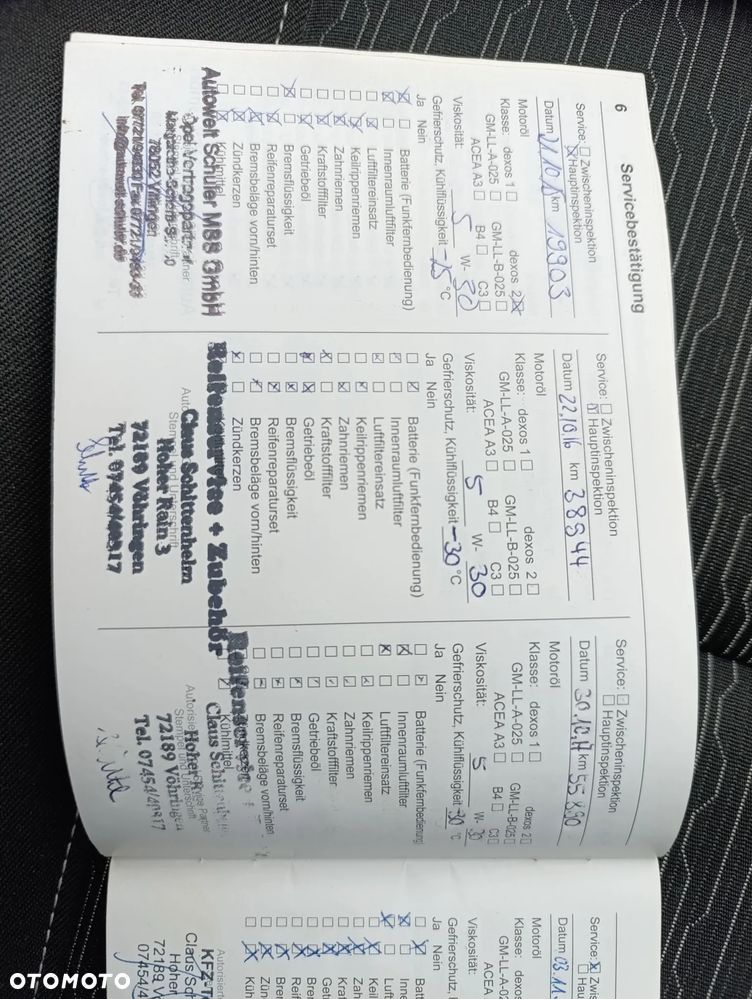 6
Servicebestätigung
Service: Zwischeninspektion
Hauptinspektion
Datum 21.10.15 km 19903
Motoröl
Klasse: dexos 1 dexos 2
GM-LL-A-025 GM-LL-B-025
ACEA A3 B4 C3
Viskosität: 5 W- 30
Gefrierschutz, Kühlflüssigkeit -25 °C
Ja Nein
Batterie (Funkfernbedienung)
Innenraumluftfilter
Luftfiltereinsatz
Keilrippenriemen
Zahnriemen
Kraftstofffilter
Getriebeöl
Bremsflüssigkeit
Reifenreparaturset
Bremsbeläge vorn/hinten
Zündkerzen
Kühlmittel
Autowelt Schuler MSS GmbH
78052 Villingen
Service: Zwischeninspektion
Hauptinspektion
Datum 22.10.16 km 38944
Motoröl
Klasse: dexos 1 dexos 2
GM-LL-A-025 GM-LL-B-025
ACEA A3 B4 C3
Viskosität: 5 W- 30
Gefrierschutz, Kühlflüssigkeit -30 °C
Ja Nein
Batterie (Funkfernbedienung)
Innenraumluftfilter
Luftfiltereinsatz
Keilrippenriemen
Zahnriemen
Kraftstofffilter
Getriebeöl
Bremsflüssigkeit
Reifenreparaturset
Bremsbeläge vorn/hinten
Zündkerzen
Reifenservice + Zubehör
Claus Schlittenhelm
Stempel und Unterschrift
Hoher Rain 3
72189 Vöhringen
Tel. 07454/40917
Service: Zwischeninspektion
Hauptinspektion
Datum 30.10.17 km 55890
Motoröl
Klasse: dexos 1 dexos 2
GM-LL-A-025 GM-LL-B-025
ACEA A3 B4 C3
Viskosität: 5 W- 30
Gefrierschutz, Kühlflüssigkeit -30 °C
Ja Nein
Batterie (Funkfernbedienung)
Innenraumluftfilter
Luftfiltereinsatz
Keilrippenriemen
Zahnriemen
Kraftstofffilter
Getriebeöl
Bremsflüssigkeit
Reifenreparaturset
Bremsbeläge vorn/hinten
Kühlmittel
Reifenservice +
Claus
Stempel und Unterschrift
Hoher
72189 Vöhringen
Tel. 07454/40917
Service: Zwi
Hau
Datum 03.11
Motoröl
Klasse: de
GM-LL
ACEA
Viskosität:
Gefrierschutz,
Ja Nein
Batt
Inne
Luft
Keil
Zah
Kra
Get
Bre
Rei
Bre
Zün
Küh
Autorisiert
KFZ-T
Claus/Sc
Hoher
72189 V
07454/4
OTOMOTO